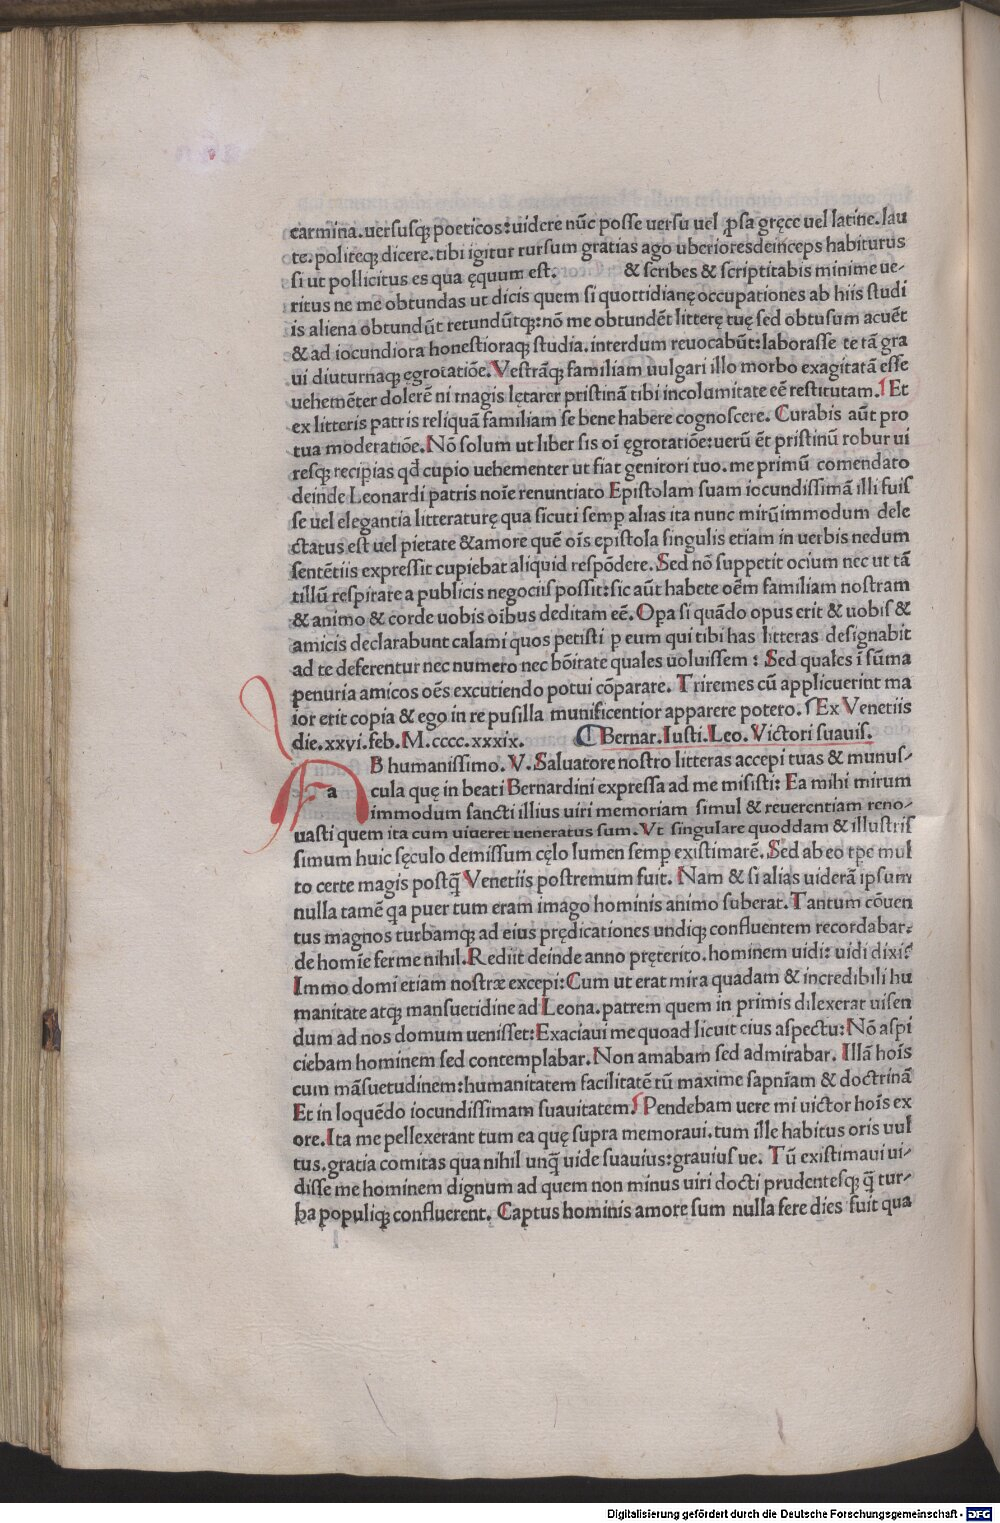 carmina.uersusq; poeticos:uidere nūc posse uersu uel ꝓsa gręce uel latine.lau
te.politeq; dicere.tibi igitur rursum gratias ago uberioresdeinceps habiturus
si ut pollicitus es qua ęquum est. & scribes & scriptitabis minime ue-
ritus ne me obtundas ut dicis quem si quottidianę occupationes ab hiis studi
is aliena obtundūt retundūtq;:nō me obtundēt litterę tuę sed obtusum acuēt
& ad iocundiora honestioraq; studia.interdum reuocabūt:laborasse te tā gra
ui diuturnaq; ęgrotatiōe.Vestrāq; familiam uulgari illo morbo exagitatā esse
uehemēter dolerē ni magis lętarer pristinā tibi incolumitate eē restitutam.¶Et
ex litteris patris reliquā familiam se bene habere cognoscere. Curabis aūt pro
tua moderatiōe.Nō solum ut liber sis oī ęgrotatiōe:uerū ēt pristinū robur ui
resq; recipias qđ cupio uehementer ut fiat genitori tuo.me primū comendato
deinde Leonardi patris noīe renuntiato Epistolam suam iocundissimā illi fuis
se uel elegantia litteraturę qua sicuti semꝑ alias ita nunc mirū immodum dele
ctatus est uel pietate &amore quē oīs epistola singulis etiam in uerbis nedum
sentētiis expressit cupiebat aliquid respōdere.Sed nō suppetit ocium nec ut tā
tillū respirare a publicis negociis possit:sic aūt habete oēm familiam nostram
& animo & corde uobis oibus deditam eē.Opa si quādo opus erit & uobis &
amicis declarabunt calami quos petisti ꝑ eum qui tibi has litteras designabit
ad te deferentur nec numero nec bōitate quales uoluissem : Sed quales ī sūma
penuria amicos oēs excutiendo potui cōparare. Triremes cū applicuerint ma
ior erit copia & ego in re pusilla munificentior apparere potero.¶Ex Venetiis
die.xxvi.feb.M.cccc.xxxix. ¶Bernar.Iusti.Leo.Victori suauis.
a B humanissimo.V.Saluatore nostro litteras accepi tuas & munus-
cula quę in beati Bernardini expressa ad me misisti: Ea mihi mirum
immodum sancti illius uiri memoriam simul & reuerentiam reno-
uasti quem ita cum uiueret ueneratus sum.Vt singulare quoddam & illustris
simum huic sęculo demissum cęlo lumen semꝑ existimarē.Sed ab eo tꝑe mul
to certe magis postq̄ Venetiis postremum fuit. Nam & si alias uiderā ipsum
nulla tamē qa puer tum eram imago hominis animo suberat.Tantum cōuen
tus magnos turbamq; ad eius prędicationes undiq; confluentem recordabar.
de homīe ferme nihil.Rediit deinde anno pręterito.hominem uidi: uidi dixi?
Immo domī etiam nostræ excepi:Cum ut erat mira quadam & incredibili hu
manitate atq; mansuetidine ad Leona.patrem quem in primis dilexerat uisen
dum ad nos domum uenisset:Exaciaui me quoad licuit eius aspectu:Nō aspi
ciebam hominem sed contemplabar.Non amabam sed admirabar. Illā hoīs
cum māsuetudinem:humanitatem facilitatē tū maxime sapnīam & doctrinā
Et in loquēdo iocundissimam suauitatem.¶Pendebam uere mi uictor hoīs ex
ore.Ita me pellexerant tum ea quę supra memoraui.tum ille habitus oris uul
tus.gratia comitas qua nihil unq̄ uide suauius:grauius ue. Tū existimaui ui-
disse me hominem dignum ad quem non minus uiri docti prudentesq; q̄ tur-
ba populiq; confluerent. Captus hominis amore sum nulla fere dies fuit qua
Digitalisierung gefördert durch die Deutsche Forschungsgemeinschaft - DFG